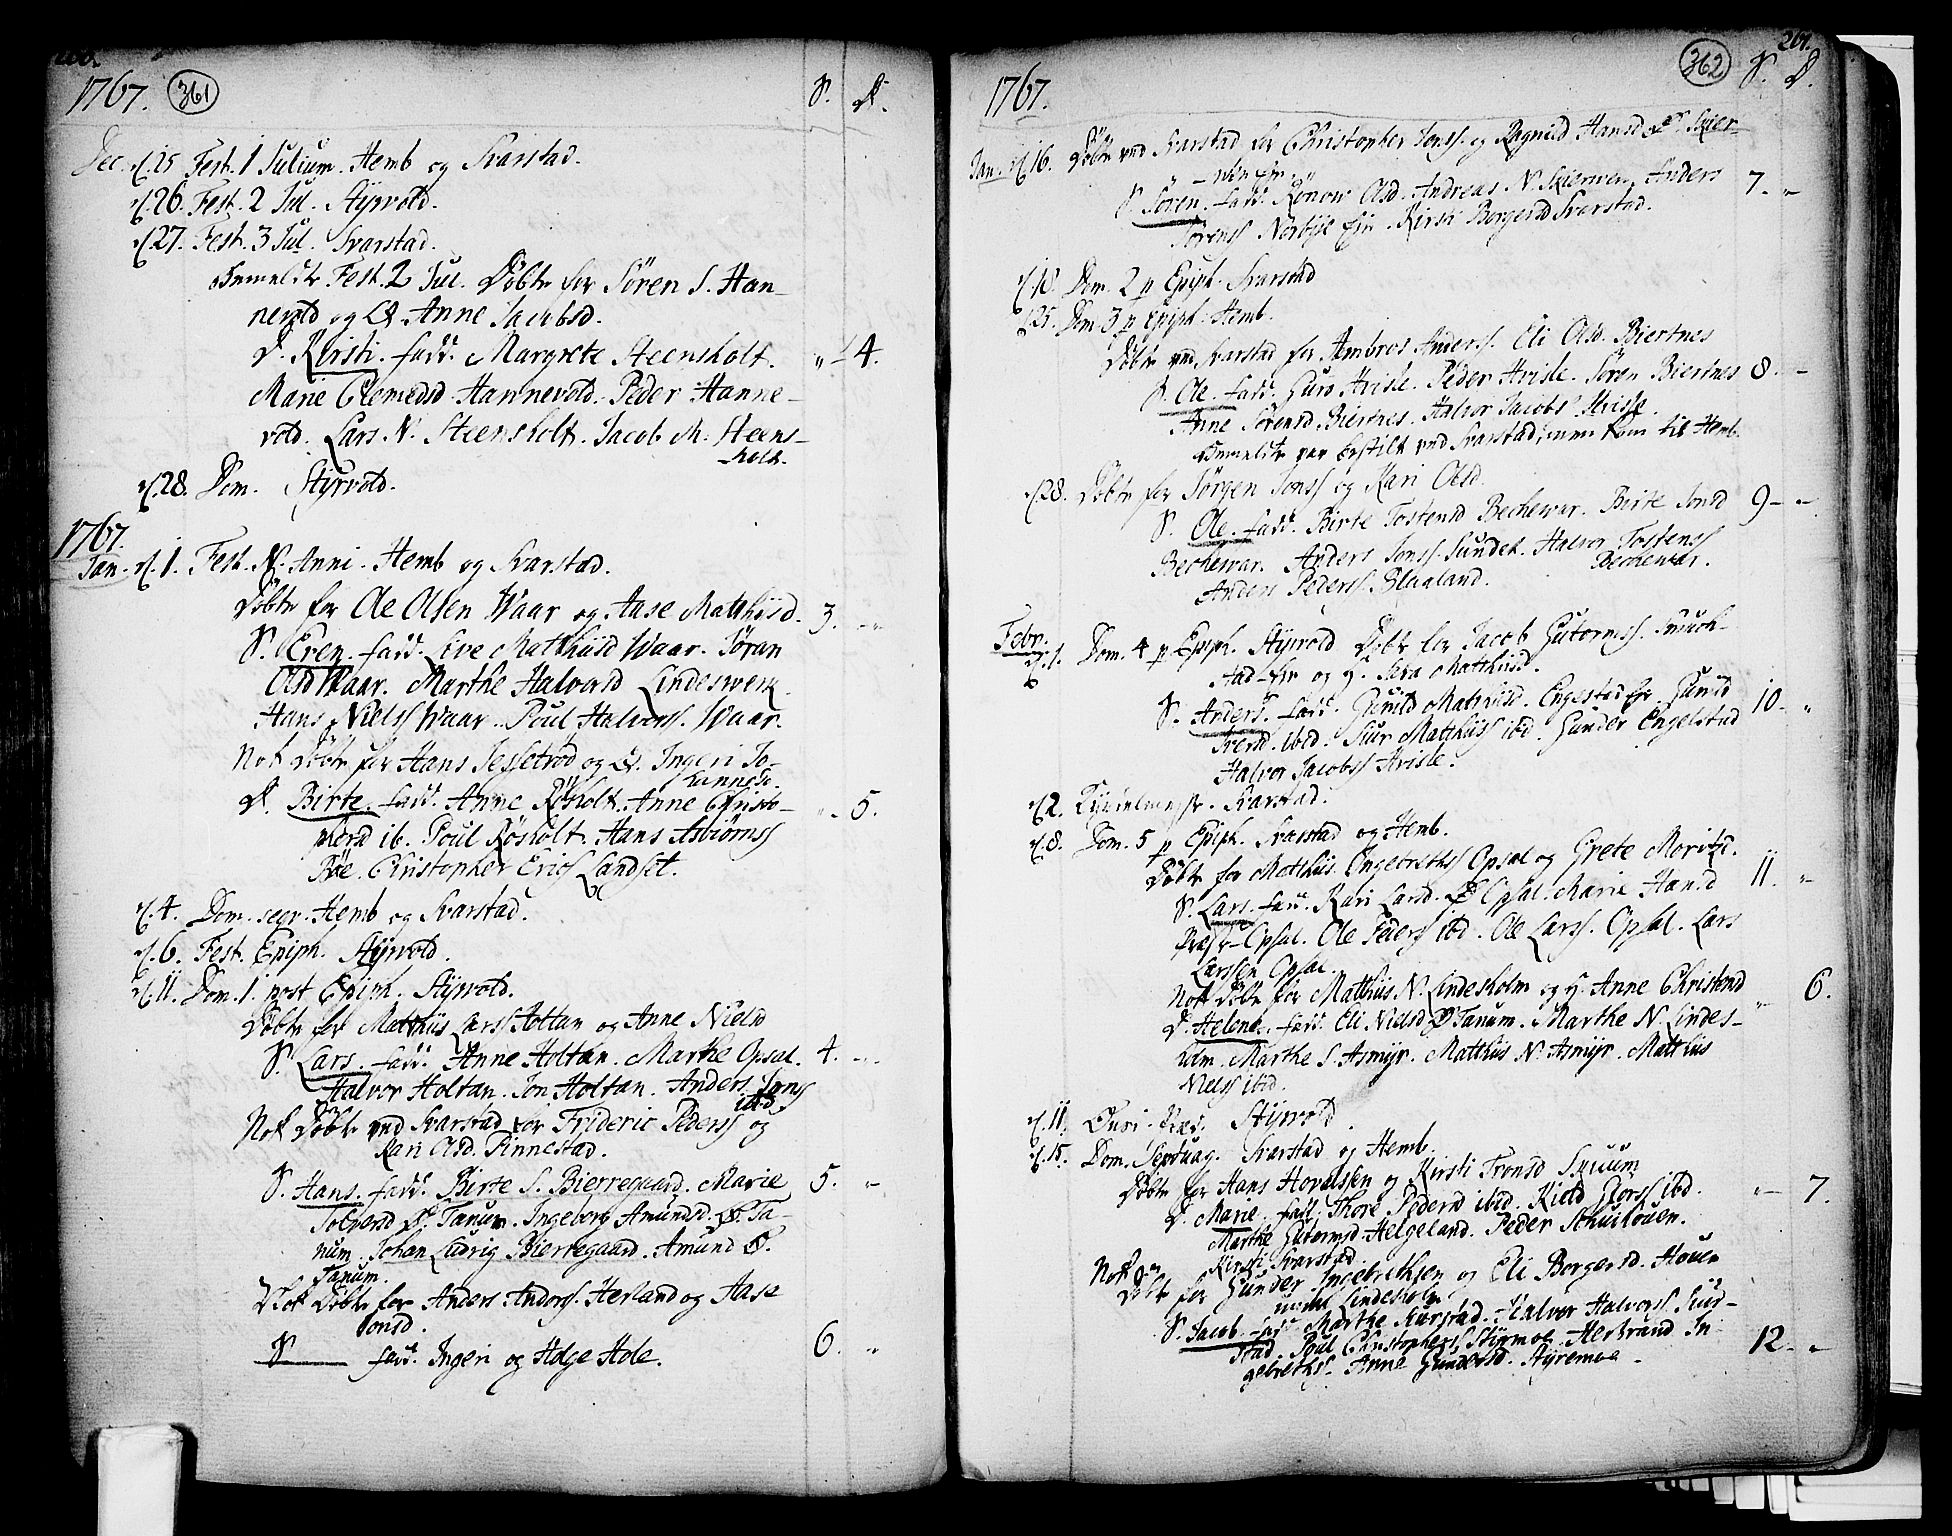 1767. 361 S. D.
Dec. d. 25 Fest. 1 Julium. Hemb og Svarstad.
d. 26. Fest. 2 Jul. Styrvold.
d. 27. Fest. 3 Jul. Svarstad.
Fest. 2 Jul. Döbte for Sören S. Han-
nevold og Anne Jacobsd.
D. Kirsti. fadd. Margrete Steensholt. " 4.
Marie Clemedsd Hannevold. Peder Hanne-
vold. Lars N. Steensholt. Jacob M. Steens-
holt.
d. 28. Dom. Styrvold.
1767.
Jan. d. 1. Fest. N. Anni. Hemb og Svarstad.
Döbte for Ole Olsen Waar og Aase Matthisd. 3. "
S. Even. fadd. Live Matthisd Waar. Söran
Olsd Waar. Marthe Halvorsd Lindeswerk.
Hans Nielss Waar. Poul Halvorss. Waar.
Nok Döbte for Hans Jessetröd og Ingeri Jo-
hannesd.
D. Birte. fadd. Anne Rösholt. Anne Christo- " 5.
phersd ib. Poul Rösholt. Hans Asbiörnss
Böe. Christopher Erics Landset.
d. 4. Dom. seqv. Hemb og Svarstad.
d. 6. Fest. Epiph. Styrvold.
d. 11. Dom. 1. post Epiph. Styrvold.
Döbte for Matthis Larss Holtan og Anne Nielsd
S. Lars. fadd. Anne Holtan. Marthe Opsal. 4. "
Halvor Holtan. Jon Holtan. Anders Jonss
ibid.
Nok Döbte ved Svarstad for Frideric Pederss og
Kari Olsd. Pinnestad.
S. Hans. fadd. Birte S. Bierregaard. Marie 5. "
Tolversd Ø. Tanum. Ingeborg Amundsd. Ø. Ta-
num. Johan Ludvig Bierregaard. Amund Ø.
Tanum.
Nok Döbte for Anders Anderss. Herland og Aase
Jonsd.
S fadd. Ingeri og Helge Hole. 6. "
1767. 362 267. S. D.
Jan. d. 16. Döbte ved Svarstad for Christopher Jonss. og Ragnild Hansd Skier-
wen
S. Sören. fadd. Rönow Olsd. Andreas N. Skierwen. Anders 7. "
Sörenss Nordbye Kirsti Borgersd Svarstad.
d. 18. Dom. 2 p Epiph. Svarstad
d. 25. Dom. 3 p Epiph. Hemb.
Döbte ved Svarstad for Ambros Anderss. Eli Olsd. Biertnes
S. Ole. fadd. Guro Hvisle. Peder Hvisle. Sören Biertnes 8. -
Anne Sörensd Biertnes. Halvor Jacobss Hvisle.
var bestilt ved Svarstad, men kom til Hemb.
d. 28. Döbte for Jörgen Jonss og Kari Olsd.
S. Ole. fadd. Birte Tostensd Bechewar. Birte Jonsd 9 - "
Bechewar. Anders Jonss. Sundet. Halvor Tostenss
Bechewar.
Anders Pederss. Blaaland.
Febr.
d. 1. Dom. 4 p Epiph. Styrvold Döbte for Jacob Gutormss.
og Sara Matthisd.
S. Anders. fadd. Gunild Matthisd. Engestad Gunild 10. "
Iversd. ibid. Siur Matthiss ibd. Gunder Engelstad
Halvor Jacobss Hvisle.
d. 2. Svarstad.
d. 8. Dom. 5 p Epiph. Svarstad og Hemb.
Döbte for Matthis Engebrethss Opsal og Grete Moritsd.
S. Lars. fadd. Kari Larsd. Ø Opsal. Marie Hansd 11. "
Opsal. Ole Pederss ibd. Ole Larss. Opsal. Lars
Larssen Opsal.
Nok Döbte for Matthis N. Lindesholm og Anne Christensd " 6.
D. Helene. fadd. Eli Nielsd Ø Tanum. Marthe N. Lindes-
holm. Marthe S. Asmyr. Matthis N. Asmyr. Matthis
Nielss ibid.
d. 11. Styrvold.
d. 15. Dom. Septuag. Svarstad og Hemb.
Döbte for Hans Hovelssen og Kirsti Tronsd " 7.
D. Marie. fadd. Thore Pedersd ibid. Kield Giorss ibd.
Marthe Gutormsd. Helgeland. Peder
Kirsti Svarstad
Nok
Döbt for Gunder Ingebrethsen og Eli Borgersd. Houen
Lindesholm
S. Jacob. fadd. Marthe Svarstad. Halvor Halvorss Svar-
stad. Poul Christopherss Styrmoe. Herbrand In- 12. "
gebrethss. Anne Gundersd. Styremoe.